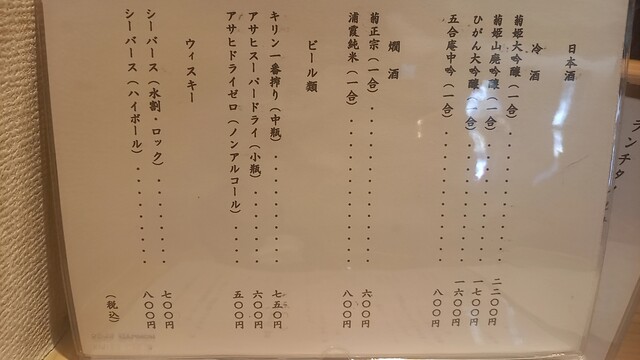 日本酒
冷酒
菊姫大吟醸(一合)・・・・・・・・・・二二〇〇円
菊姫山廃吟醸(一合)・・・・・・・・・一七〇〇円
ひがん大吟醸(一合)・・・・・・・・・一六〇〇円
五合庵中吟(一合)・・・・・・・・・・八〇〇円
燗酒
菊正宗(一合)・・・・・・・・・・・・六〇〇円
浦霞純米(一合)・・・・・・・・・・・八〇〇円
ビール類
キリン一番搾り(中瓶)・・・・・・・・七五〇円
アサヒスーパードライ(小瓶)・・・・・六〇〇円
アサヒドライゼロ(ノンアルコール)・・・五〇〇円
ウィスキー
シーバース(水割・ロック)・・・・・・七〇〇円
シーバース(ハイボール)・・・・・・・八〇〇円
(税込)